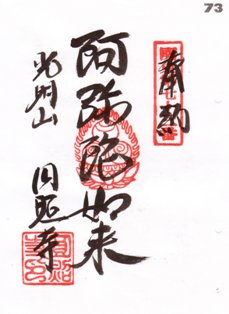 73
奉納
阿弥陀如来
光明山
円照寺